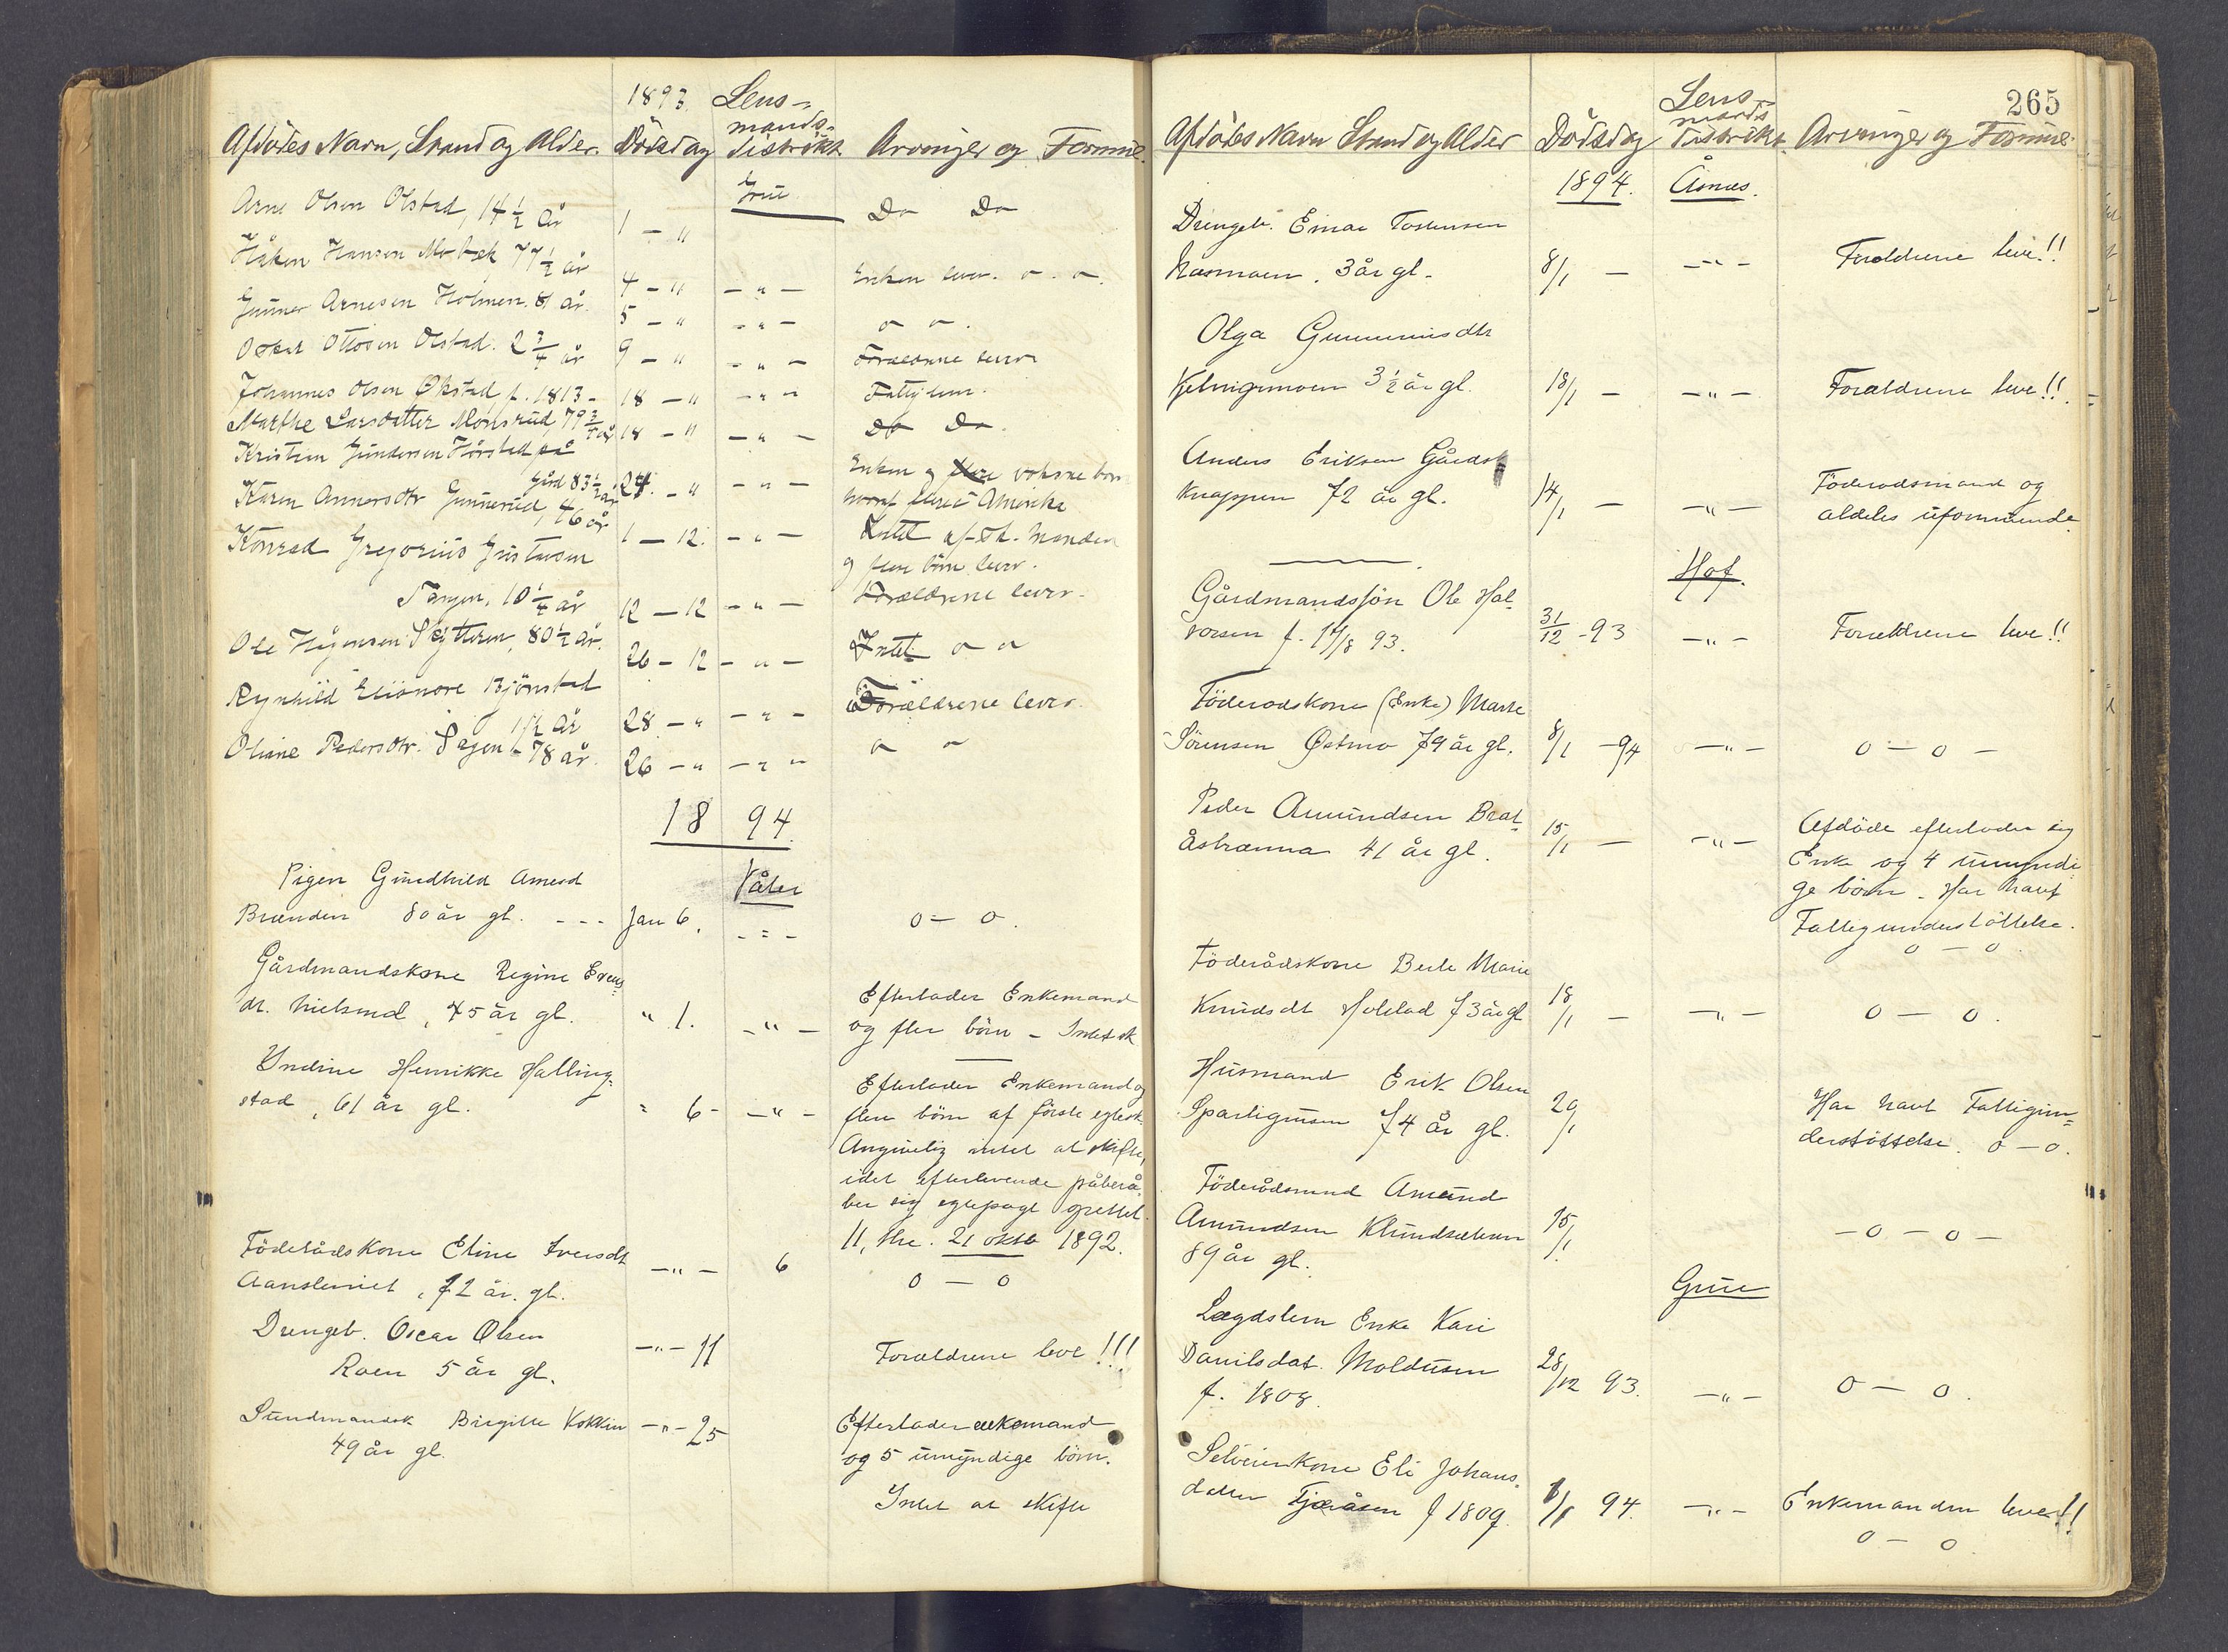 1893. Lens-
mands-
Afdødes Navn, Stand og Alder. Dødsdag distrikt Arvinger og Formue.
Grue
Arne Olsen Olstad, 14 1/2 år 1 - " Do Do
Håken Hansen Mobæk 77 1/2 år 4 - " - " - Enken lever. o. o.
Gunner Arnesen Holmen. 81 år. 5 - " - " - o o.
Oskar Ottosen Olstad. 2 3/4 år 9 - " - " - Forældrene lever
Johannes Olsen Økstad f. 1813 - 18 - " - " - Fattiglem.
Marthe Larsdatter Monsrud, 79 3/4 år 18 - " - " - Do Do.
Kristian Gundersen Hårstad på
Gård 83 1/2 år 24. - " - " - Enken og voksne børn
Karen Annersdtr Gunnerud, 46 år 1 - 12. - " - Intet af Sk. Manden
og flere børn lever.
Konrad Gregorius Gustavsen
Tangen, 10 1/4 år 12 - 12 - " - Forældrene lever.
Ole Håg­ensen Skytteren, 80 1/2 år. 26 - 12 - " - Intet o o
Rynhild Elionore Bjørnstad
1 1/2 år 28 - " - " - Forældrene lever.
Oliane Pedersdtr. Sagen - 78 år. 26 - " - " - o o
1894.
Våler
Pigen Gundhild Amund
Brænden 80 år gl. - - - Jan 6. - = - o - o.
Gårdmandskone Regine Evens-
dt. Nielsmd, 45 år gl. " 1. - " - Efterlader Enkemand
og fler børn - Intet sk
Undine Henrikke Halling-
stad, 61 år gl. = 6 - - " - Efterlader Enkemand og
flere børn af første egtesk.
Angivelig intet at skifte,
idet efterlevende påberå-
ber sig egtepagt oprettet
11, thl. 21 oktb 1892.
Föderådskone Eline Iversdt - " - 6 o - o
72 år. gl.
Drengeb. Oscar Olsen - " - 11 Forældrene leve!!!
Roen 5 år gl.
Birgitte Kokkin - " - 25 Efterlader enkemand
49 år gl. og 5 umyndige børn.
Intet at skifte
265
Lens-
mands
Afdødes Navn Stand og Alder Dødsdag distrikt. Arvinger og Formue.
1894. Åsnes.
Drengeb. Einar Tostensen
3 år gl. 8/1 - - " - Forældrene leve!!
Olga Gunnerinsdtr
3 1/2 år gl. 18/1 - - " - Forældrene leve!!
Anders Eriksen Gårdsk
Knappen 72 år gl. 14/1 - - " - Föderadsmand og
aldeles uformuende
Hof.
Gårdmandssön Ole Hal-
vorsen f. 17/8 93. 31/12 - 93 - " - Forældrene leve!!
Föderadskone (Enke) Marte
Sörensen Östmo 79 år gl. 8/1 - 94 - " - o - o -
Peder Amundsen Brat-
åsbrænna 41 år gl. 15/1 - - " - Afdöde efterlader sig
Enke og 4 umyndi-
ge börn. Har havt
Fattigunderstöttelse.
o - o.
Föderådskone Berte Marie
Knudsdt Holstad 73 år gl 18/1 - - " - o - o.
Husmand Erik Olsen
Sparligrusen 74 år gl. 29/1 Har havt Fattigun-
derstöttelse. o - o.
Föderådsmand Amund
Amundsen 15/1 - o - o -
89 år gl.
Grue
Lægdslem Enke Kari
Danilsdat. Moldusen 28/12 93. - " - o - o.
f. 1808.
Selveierkone Eli Johans-
datter Tjæråsen f 1809. 1/1 94. - " - Enkemanden lever!!
o - o.